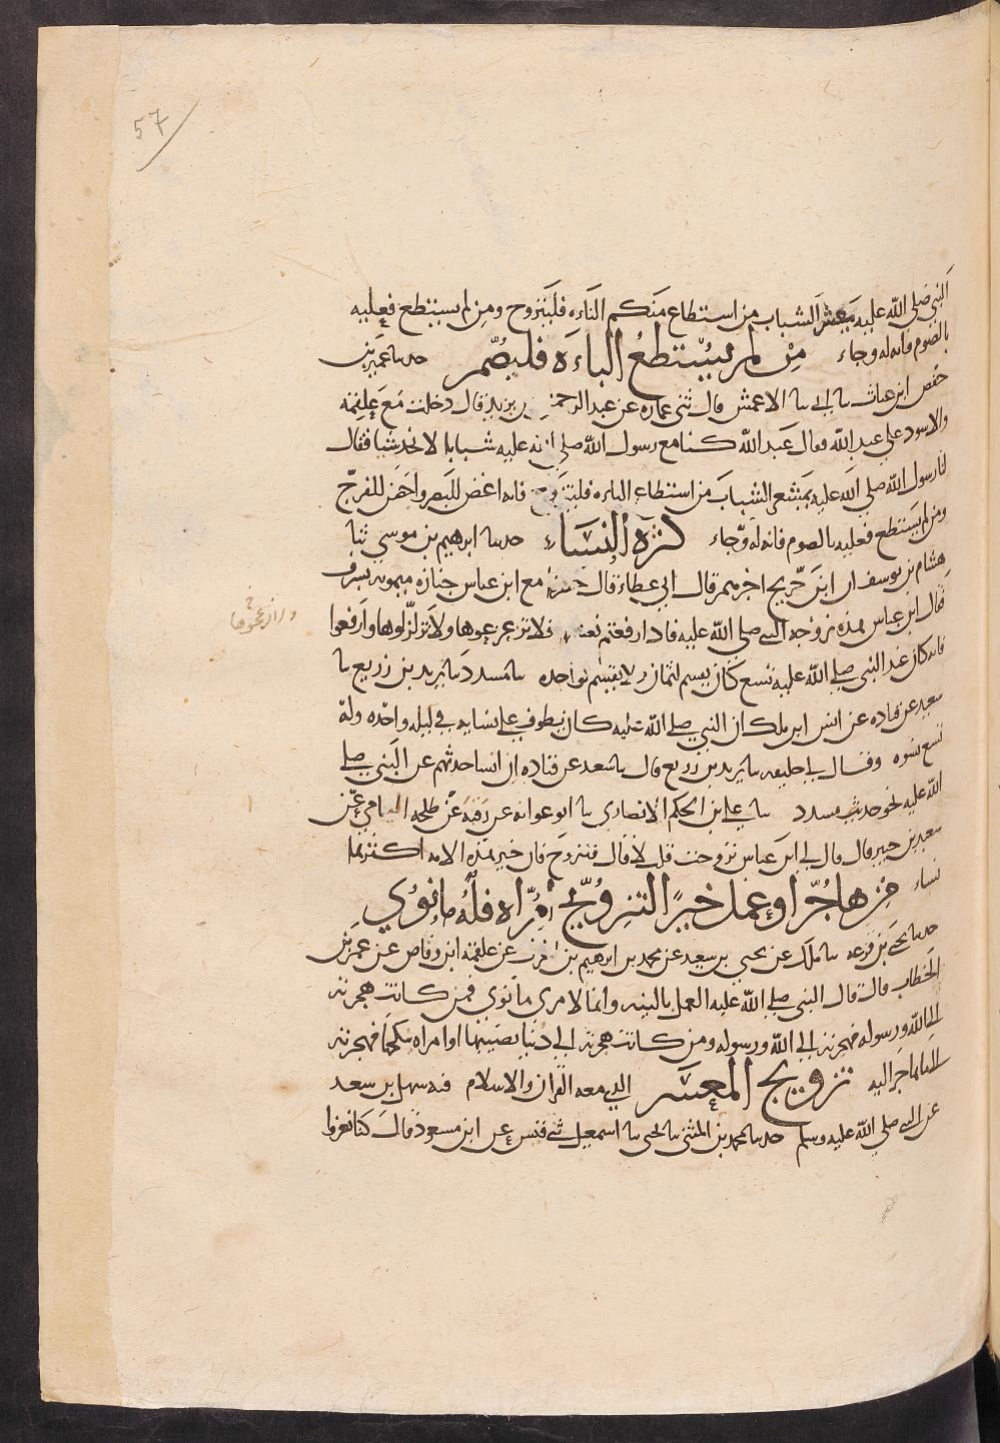 57
النبي صلى الله عليه يمعشر الشباب من استطاع منكم الباءه فليتزوج ومن لم يستطع فعليه
بالصوم فانه له وجاء من لم يستطع الباءة فليصم حدثنا عمر بن
حفص ابن غياث نا ابي نا الاعمش قال ثني عماره عن عبد الرحمن بن يزيد قال دخلت مع علقمه
والاسود على عبد الله فقال عبد الله كنا مع رسول الله صلى الله عليه شبابا لا نجد شيا فقال
لنا رسول الله صلى الله عليه يمعشر الشباب من استطاع الباءه فليتزوج فانه اغض للبصر واحصن للفرج
ومن لم يستطع فعليه بالصوم فانه له وجاء كثرة النساء حدثنا ابرهيم بن موسى ثنا
هشام بن يوسف ان ابن جريج اخبرهم قال اني عطاء قال حضرنا مع ابن عباس جنازه ميمونه بسرف
فقال ابن عباس هذه زوجه النبي صلى الله عليه فاذا رفعتم نعشها فلا تزعزعوها ولا تزلزلوها وارفعوا
فانه كان عند النبي صلى الله عليه تسع كان يقسم لثمان ولا يقسم لواحده نا مسدد نا يزيد بن زريع نا
سعيد عن قتاده عن انس ابن ملك ان النبي صلى الله عليه كان يطوف على نسايه في ليله واحده وله
تسع نسوه وقال لي خليفه نا يزيد بن زريع قال نا سعد عن قتاده ان انسا حدثهم عن النبي صلى
الله عليه نحو حديث مسدد نا علي ابن الحكم الانصاري نا ابو عوانه عن رقبه عن طلحه اليامي عن
سعيد بن جبير قال قال لي ابن عباس تزوجت قلت لا قال فتزوج فان خير هذه الامه اكثرها
نساء من هاجر او عمل خيرا لتزويج امراه فله ما نوى
حدثنا يحيى بن قزعه نا ملك عن يحيى بن سعيد عن محمد بن ابرهيم بن الحرث عن علقمه ابن وقاص عن عمر بن
الخطاب قال قال النبي صلى الله عليه العمل بالنيه وانما لامرى ما نوى فمن كانت هجرته
الى الله ورسوله فهجرته الى الله ورسوله ومن كانت هجرته الى دنيا يصيبها او امراه ينكحها فهجرته
الى ما هاجر اليه تزويج المعسر الذي معه القران والاسلام فيه سهل بن سعد
عن النبي صلى الله عليه وسلم حدثنا محمد بن المثنى نا يحيى نا اسمعيل ثني قيس عن ابن مسعود قال كنا نغزوا